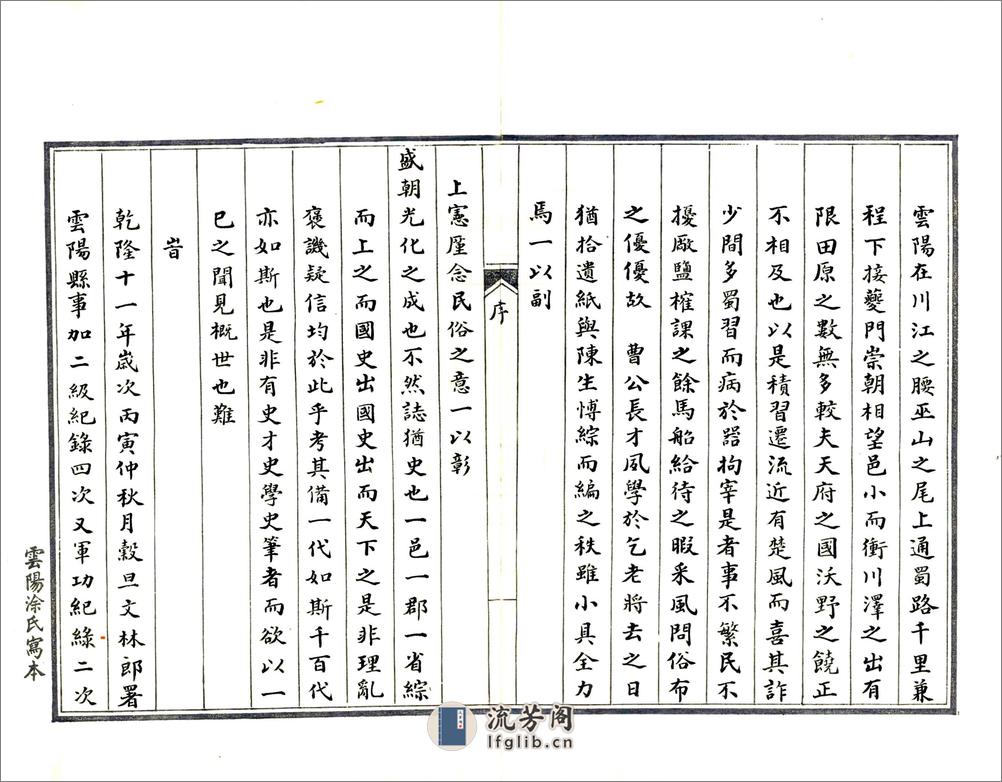 雲陽在川江之腰巫山之尾上通蜀路千里兼
程下接夔門崇朝相望邑小而衝川澤之出有
限田原之數無多較夫天府之國沃野之饒正
不相及也以是積習遷流近有楚風而喜其詐
少間多蜀習而病於器拘宰是者事不繁民不
擾厰鹽榷課之餘馬船給待之暇釆風問俗布
之優優故 曹公長才夙學於乞老將去之日
猶拾遺紙與陳生愽綜而編之秩雖小具全力
焉一以副
序
上憲厪念民俗之意一以彰
盛朝光化之成也不然誌猶史也一邑一郡一省綜
而上之而國史出國史出而天下之是非理亂
褒譏疑信均於此乎考其備一代如斯千百代
亦如斯也是非有史才史學史筆者而欲以一
已之聞見概世也難
旹
乾隆十一年歲次丙寅仲秋月穀旦文林郎署
雲陽縣事加二級紀錄四次又軍功紀綠二次
雲陽涂氏寫本
流芳阁
lfglib.cn